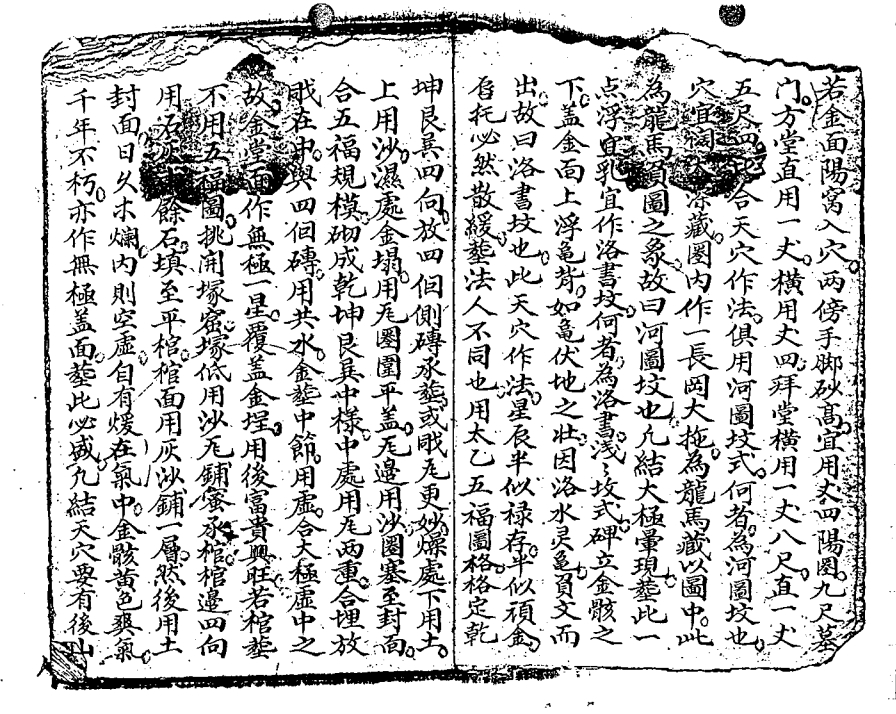 若金面陽窩入穴兩傍手脚砂髙宜用丈四陽圏九尺墓
门方堂直用一丈橫用丈四拜堂橫用一丈八尺直一丈
五尺四合天穴作法俱用河圖坟式何者為河圖坟也
穴宜濶深藏圏内作一長岡大拖為龍馬藏以圖中此
為龍馬負圖之象故曰河圖坟也凢結大極暈現塟此一
点浮宜乳宜作洛書坟何者為洛書淺〻坟式碑立金骸之
下盖金面上浮龜背如龜伏地之壮因洛水灵龜負文而
出故曰洛書坟也此天穴作法星辰半似禄存半似頑金
唇托必然散緩塟法人不同也用太乙五福圖格格定乾
坤艮巽四向放四佪側磚承塟或戝瓦更妙燥處下用土
上用沙濕處金塌用瓦圏圍平盖瓦邉用沙圏塞至封面
合五福規模砌成乾坤艮巽中樣中處用瓦兩重合埋放
戝在中與四佪磚用共水金塟中節用虚合大極虚中之
故金堂面作無極一星覆盖金埕用後富貴興旺若棺塟
不用五福圖挑開塚窰塚低用沙瓦鋪蜜承棺棺邉四向
用石灰餘石填至平棺棺面用灰沙鋪一層然後用土
封面日久木爛内則空虚自有煖在氣中金骸黄色㸑氣
千年不朽亦作無極盖面塟此必威凢結天穴要有後山